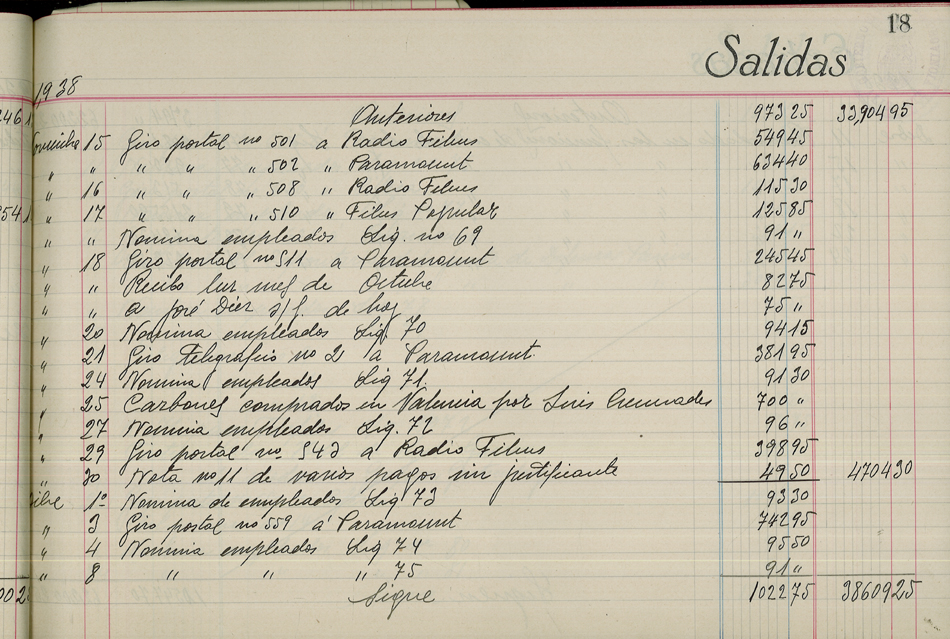 18
Salidas
1938
Anteriores 973 25 33,904 95
Noviembre 15 Giro portal no 501 a Radio Films 549 45
" " " " " 502 " Paramount 634 40
" 16 " " " 508 " Radio Films 115 30
" 17 " " " 510 " Films Popular 125 85
" " Nomina empleados Liq. no 69 91 "
" 18 Giro portal no 511 a Paramount 245 45
" " Recibo luz mes de Octubre 82 75
" " a José Diez s/f. de hoy 75 "
" 20 Nomina empleados Liq. 70 94 15
" 21 Giro telegrafico no 2 a Paramount. 381 95
" 24 Nomina empleados Liq 71. 91 30
" 25 Carbones comprados en Valencia por Luis 700 "
" 27 Nomina empleados Liq. 72 96 "
" 29 Giro portal no. 543 a Radio Films 398 95
" 30 Nota no 11 de varios pagos sin justificante 49 50 4704 30
Dibre 1º Nomina de empleados Liq 73 93 30
" 3 Giro postal no 559 á Paramount 742 95
" 4 Nomina empleados Liq 74 95 50
" 8 " " " 75 91 "
Sigue 1022 75 38609 25